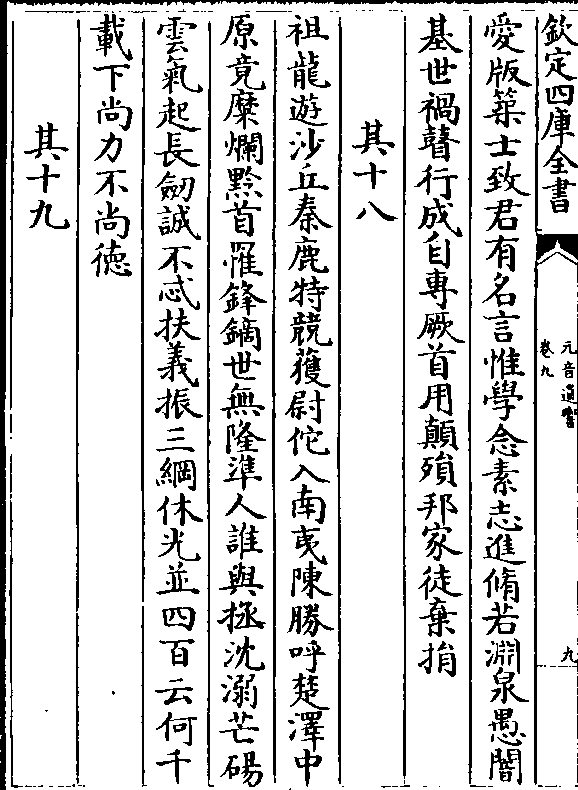 欽定四庫全書
元音遺響
卷九
九
愛版築士致君有名言惟學念素志進脩若淵泉愚闇
基世禍瞽行成自專厥首用顛殞邦家徒棄捐
其十八
祖龍遊沙丘秦鹿特競獲尉佗入南夷陳勝呼楚澤中
原竟糜爛黔首罹鋒鏑世無隆準人誰與拯沈溺芒碭
雲氣起長劒誠不忒扶義振三綱休光並四百云何千
載下尚力不尚德
其十九